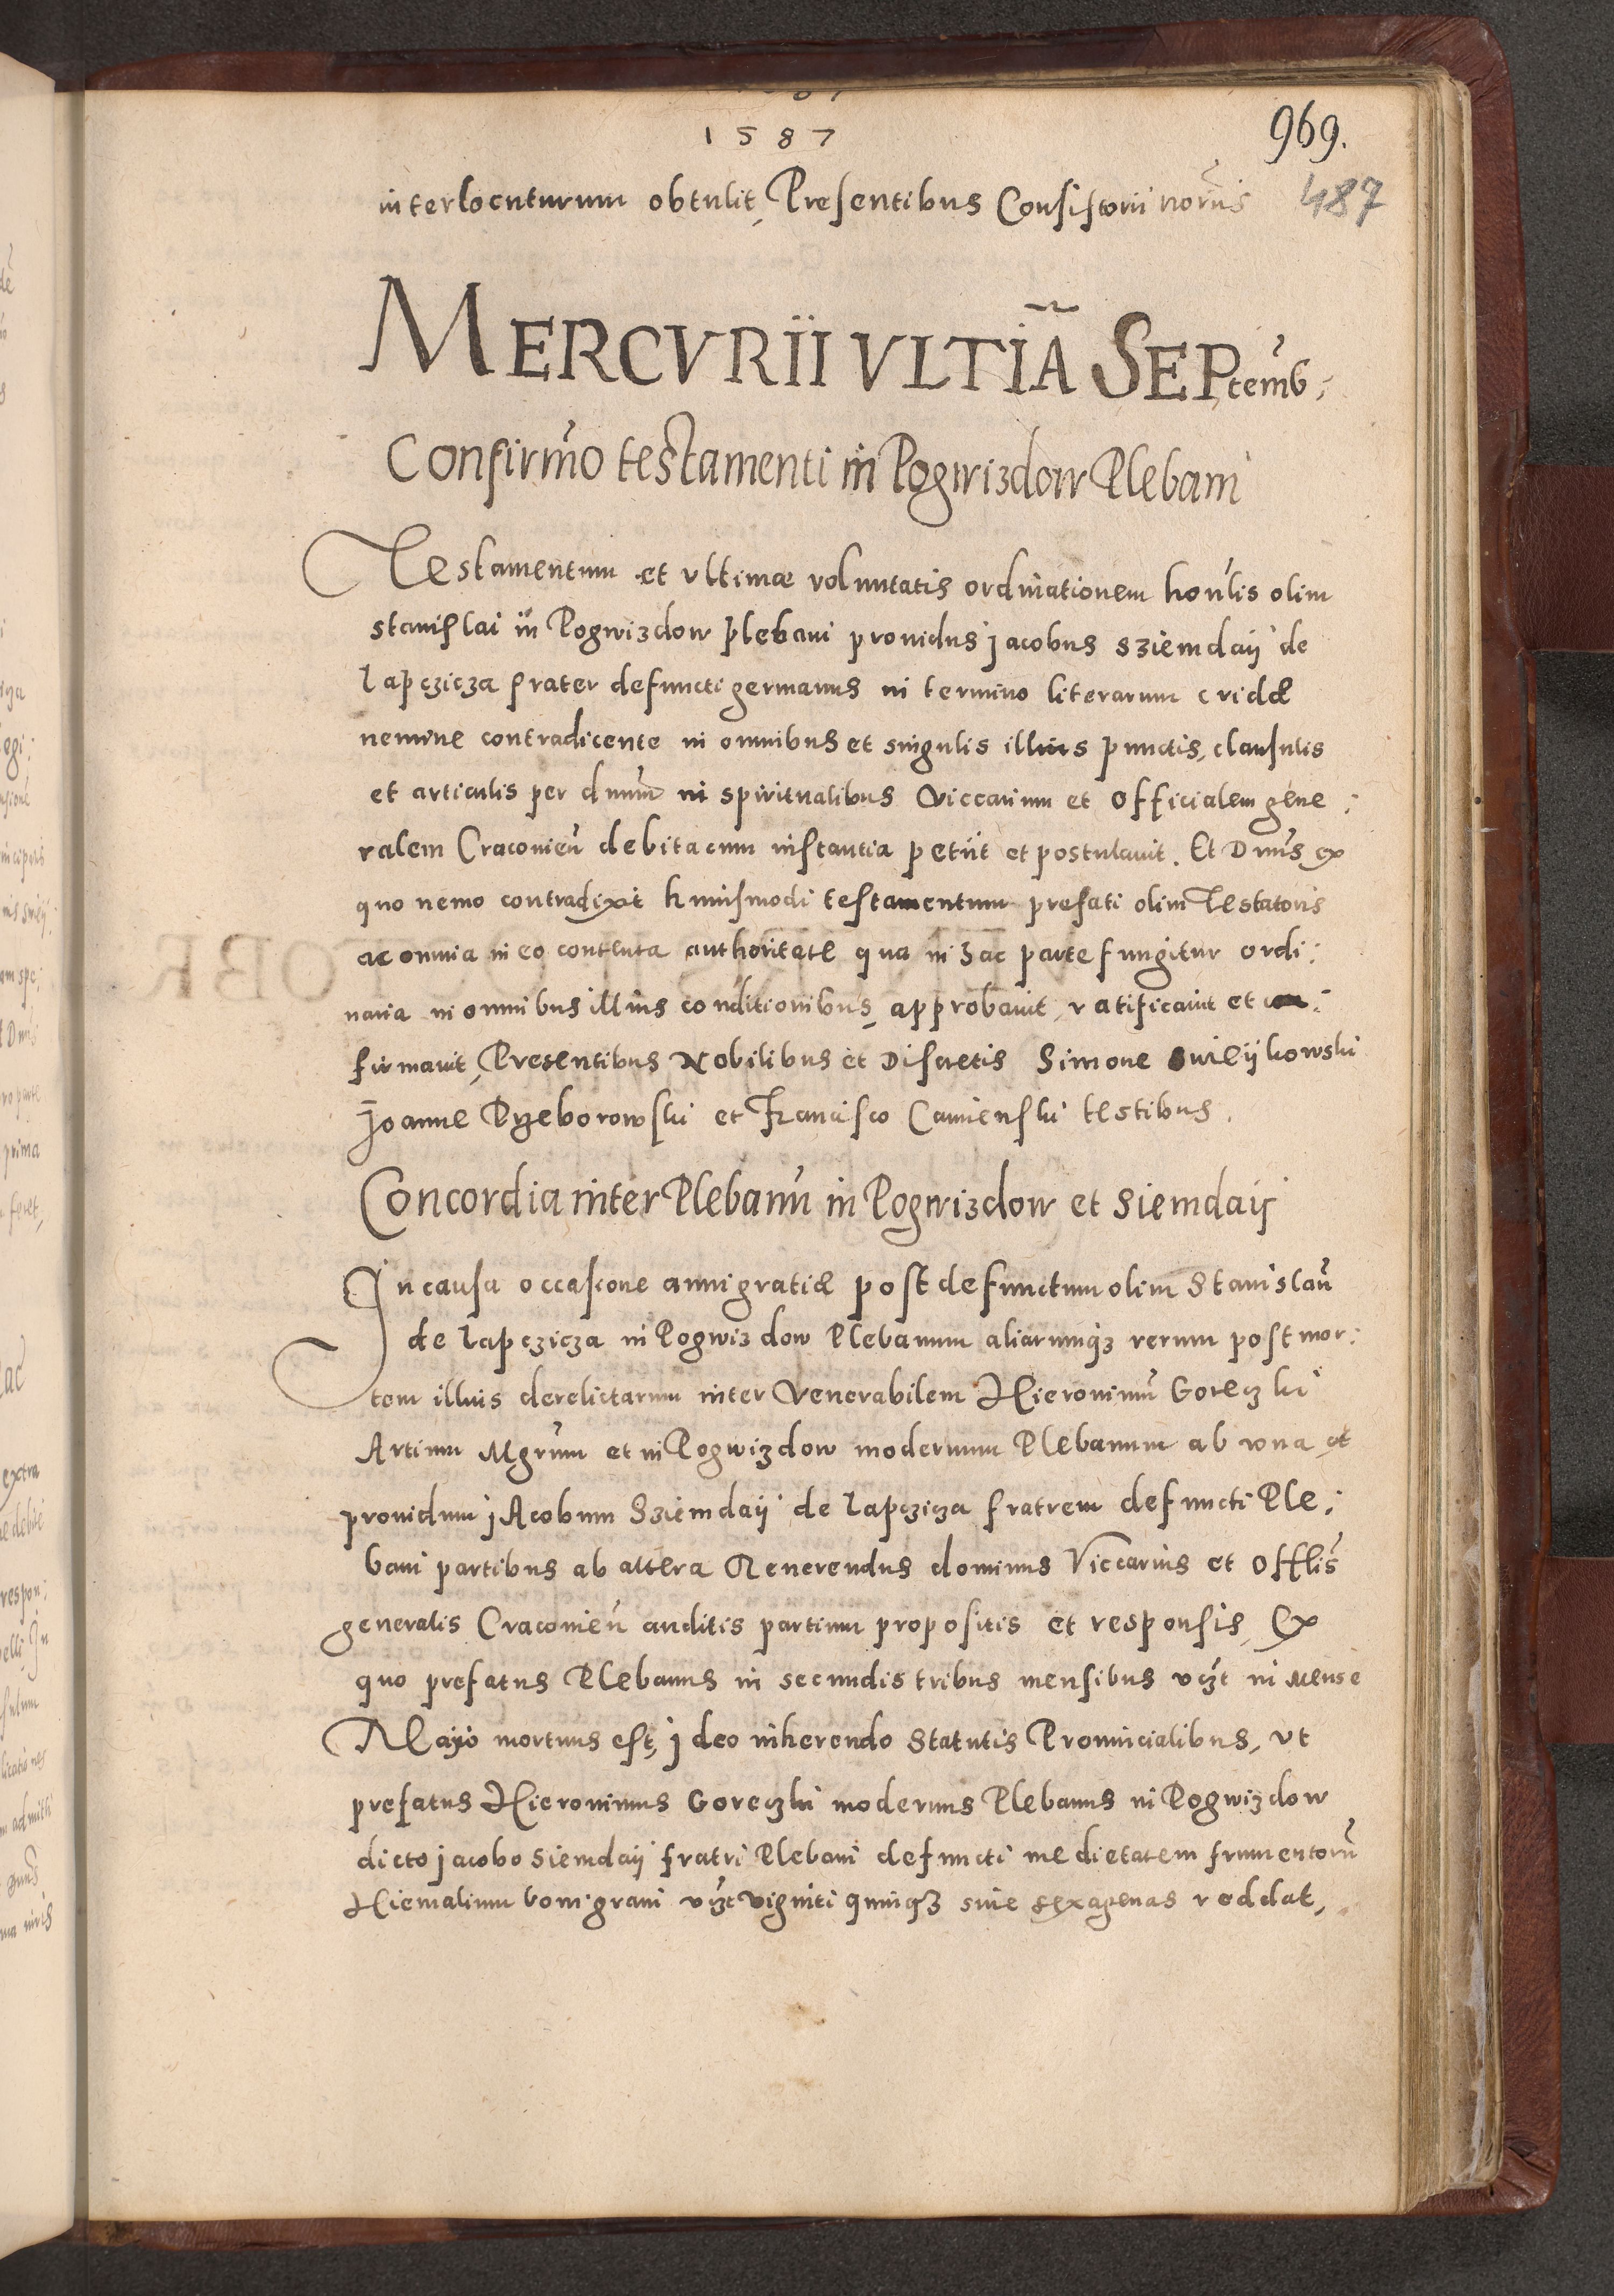 1587
969.
interlocuturum obtulit, Presentibus Consistorii norijs
487
MERCVRII VLTIĀ SEPtemb:
Confirmo testamenti in Pogwizdow Plebani
Testamentum et vltimae voluntatis ordinationem honlis olim
stanislai in Pogwizdow plebani prouidus jacobus sziemdaij de
lapczicza frater defuncti germanus in termino literarum cridae
nemine contradicente in omnibus et singulis illius punctis, clausulis
et articulis per dnum in spiritualibus Viccarium et Officialem gene:
ralem Cracovien debita cum instantia petiit et postulauit. Et Dnus ex
quo nemo contradixit huiusmodi testamentum prefati olim Testatoris
ac omnia in eo contenta authoritate qua in hac parte fungitur ordi:
naria in omnibus illius conditionibus, approbauit, ratificauit et con:
firmauit, Presentibus Nobilibus et Discretis Simone Swieijkowski
Joanne Przeborowski et Francisco Camienski testibus.
Concordia inter Plebanu in Pogwizdow et Siemdaij
In causa occasione anni gratiae post defunctum olim Stanislau
de lapczicza in Pogwizdow Plebanum aliarumqz rerum post mor:
tem illius derelictarum inter Venerabilem Hieronimu Goreczki
Artium Mgrum et in Pogwizdow modernum Plebanum ab vna et
prouidum jAcobum Sziemdaij de lapczicza fratrem defuncti Ple:
bani partibus ab altera Reuerendus dominus Viccarius et Offlis
generalis Cracovien auditis partium propositis et responsis, Ex
quo prefatus Plebanus in secundis tribus mensibus vzt in Mense
Mayo mortuus est, jdeo inherendo Statutis Prouincialibus, vt
prefatus Hieronimus Goreczki modernus Plebanus in Pogwizdow
dicto jacobo Siemdaij fratri Plebani defuncti medietatem frumentoru
Hiemalium boni grani vzt viginti quinqz siue sexagenas reddat,